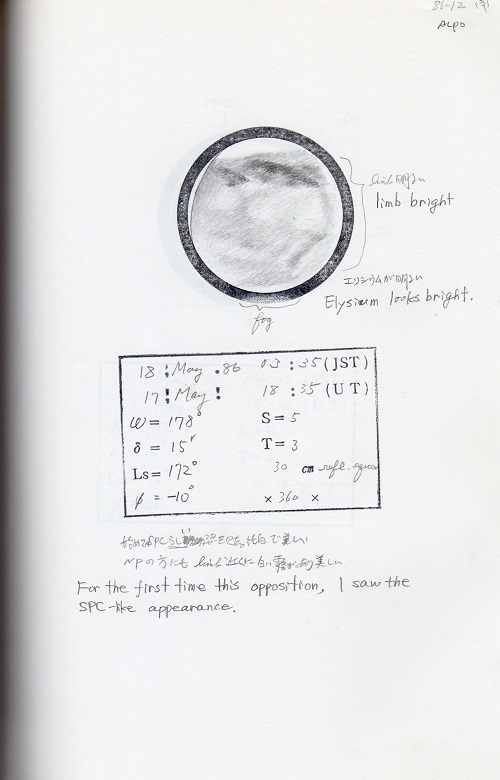 86-12
ALPO
limb 明るい
limb bright
エリシウムが明るい
Elysium looks bright.
fog
18 May .86 03 : 35 (JST)
17 ! May ! 18 : 35 (U T)
ω = 178° S = 5
δ = 15" T = 3
Ls = 172° 30 cm refl. equa
φ = -10° × 360 ×
始めてSPCらしい姿を 純白で美しい
NPの方にも limb 近くに白い霧があり美しい
For the first time this opposition, I saw the
SPC-like appearance.